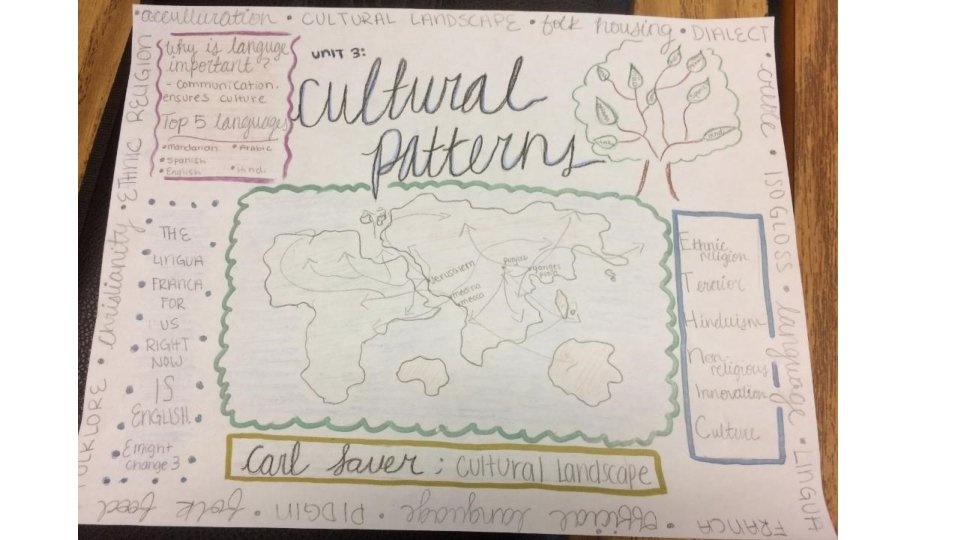 acculturation • CULTURAL LANDSCAPE • folk housing • DIALECT
• creole • ISOGLOSS • language • LINGUA
FRANCA • official language • PIDGIN • folk food
FOLKLORE • Christianity • ETHNIC RELIGION
Why is languge
important?
- Communication.
ensures culture
Top 5 languages
• mandarian
• Spanish
• English
• Arabic
• Hindi
UNIT 3:
cultural
patterns
THE
LINGUA
FRANCA
FOR
US
RIGHT
NOW
IS
ENGLISH.
might
change
Jerusalem
medina
mecca
punjab
Ganges
Ethnic
religion
Terrier
Hinduism
Non
religious
Innovation
Culture
Carl Sauer: Cultural landscape